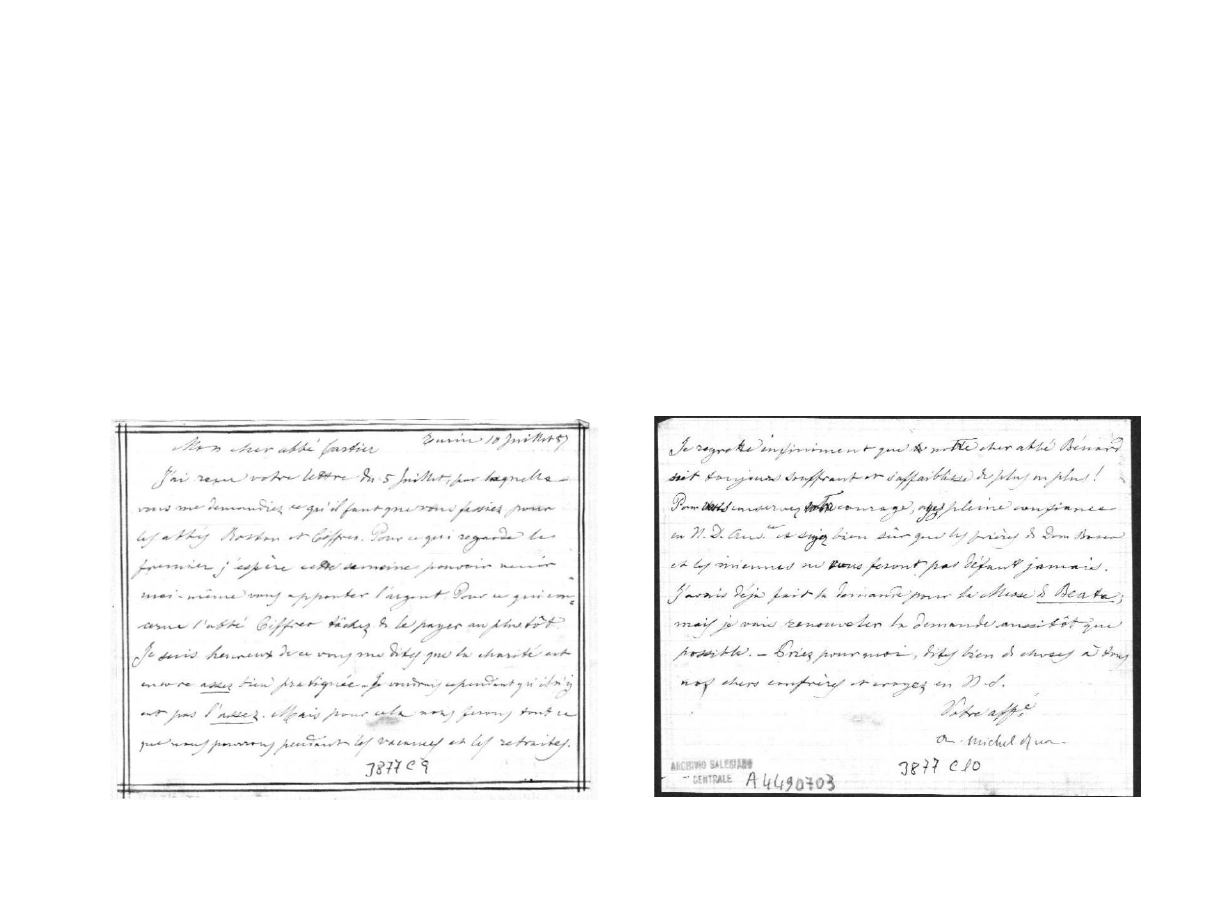 Turin 10 Juillet 87
Mon cher abbé Cartier
J'ai reçu votre lettre du 5 Juillet, par laquelle
vous me demandiez ce qu'il faut que vous fassiez pour
les abbés Roston et Ciffreo. Pour ce qui regarde le
premier j'espère cette semaine pouvoir venir
moi-même vous apporter l'argent. Pour ce qui con-
cerne l'abbé Ciffreo tâchez de le payer au plus tôt
Je suis heureux de ce vous me dites que la charité est
encore assez bien pratiquée. Je voudrais cependant qu'il n'y
eut pas l'assez. Mais pour cela nous ferons tout ce
que nous pourrons pendant les vacances et les retraites.
3877 C 9
Je regrette infiniment que notre cher abbé Bénard
soit toujours souffrant et s'affaiblisse de plus en plus!
Pour conservez votre courage, ayez pleine confiance
en N. D. Aux.ce et soyez bien sûr que les prières de Dom Bosco
et les miennes ne vous feront pas défaut jamais.
J'avais déjà fait la demande pour la Messe de Beata;
mais je vais renouveler la demande aussitôt que
possible. — Priez pour moi, dites bien de choses à tous
nos chers confrères et croyez en N. S.
Votre aff.é
a. Michel Rua
3877 C 10
ARCHIVIO SALESIANO
CENTRALE
A4490703